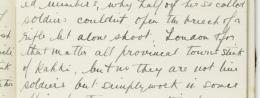 ed minutes, why half of the so called
soldiers couldnt open the breech of a
rifle let alone shoot. London & for
that matter all provincal towns stink
of Kakki, but no they are not line
soldiers but simply work in some